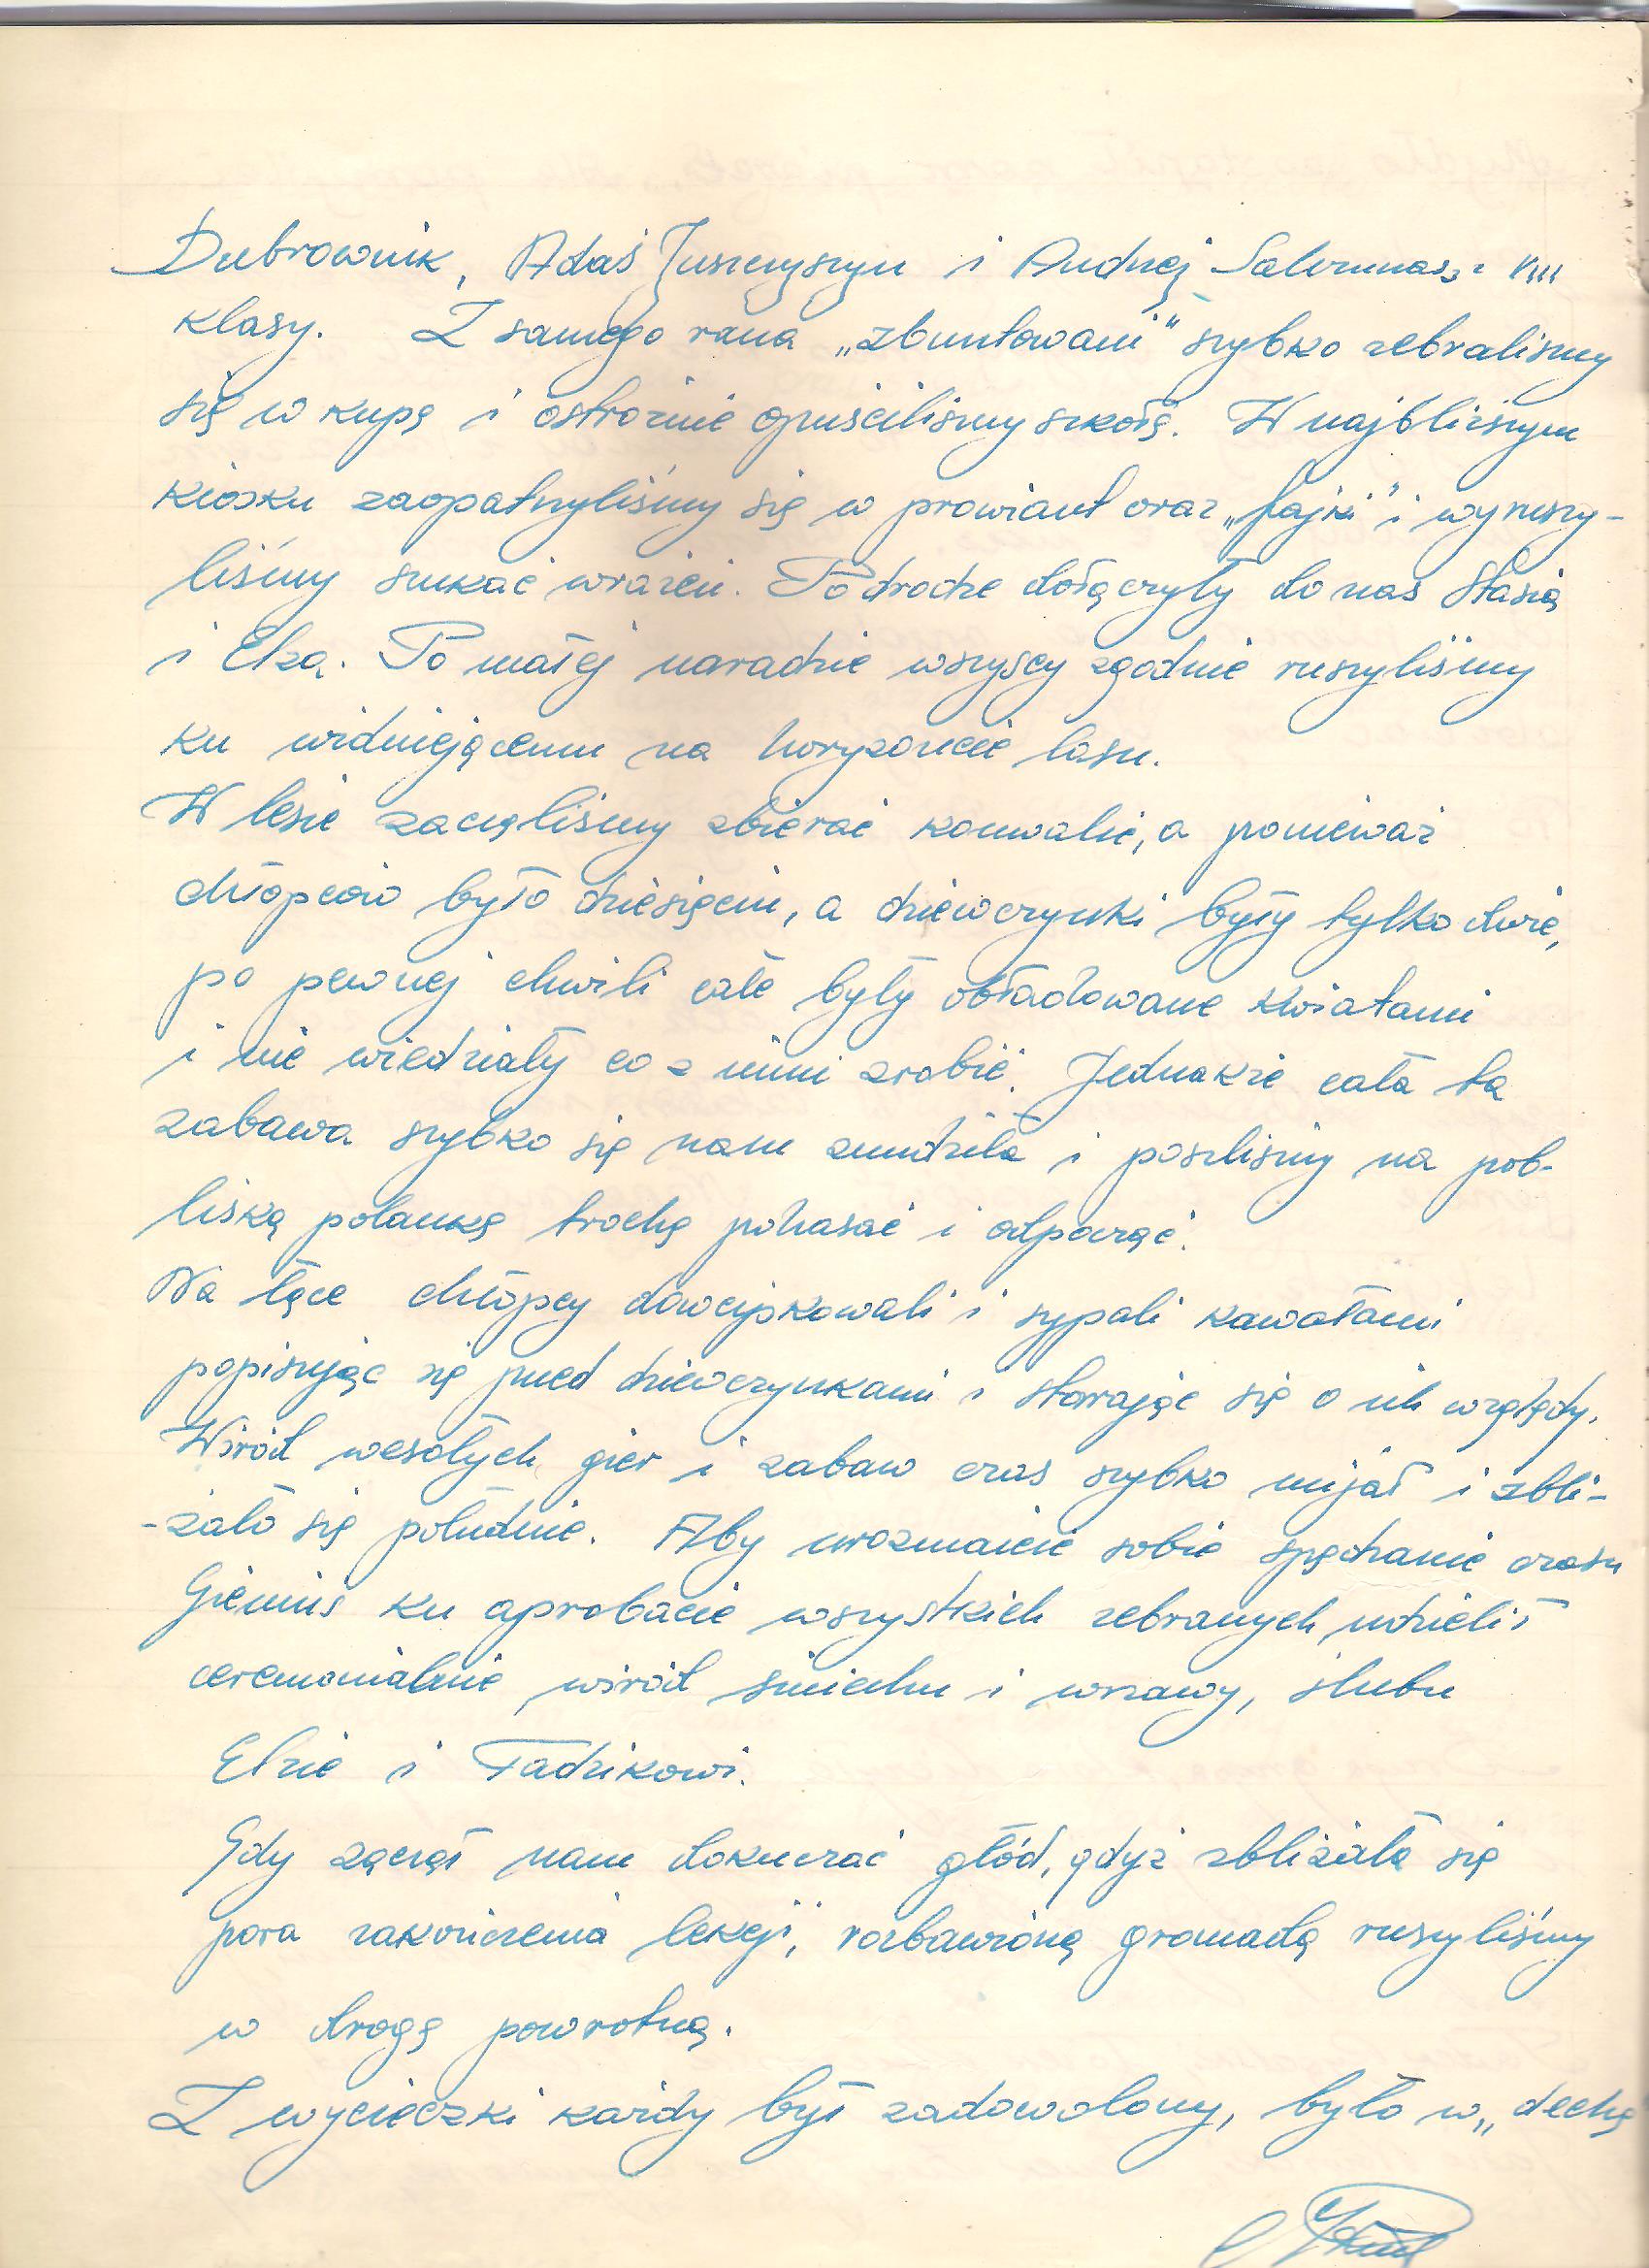 Dubrownik, Adaś Juszczyszyn i Andrzej Salwmas z VIII
klasy. Z samego rana „zbuntowani" szybko zebralismy
się w kupę i ostrożnie opuścilismy szkołę. W najbliższym
kiosku zaopatrzyliśmy się w prowiant oraz „fajki" i wyruszy-
liśmy szukać wrażeń. Po drodze dołączyły do nas Stasia
i Elza. Po małej naradzie wszyscy zgodnie ruszyliśmy
ku widniejącemu na horyzoncie lasu.
W lesie zaczęliśmy zbierać konwalie, a ponieważ
chłopców było dziesięciu, a dziewczynki były tylko dwie,
po pewnej chwili całe były obładowane kwiatami
i nie wiedziały co z nimi zrobić. Jednakże cała ta
zabawa szybko się nam znudziła i poszlismy na pob-
liską polankę trochę pohasać i odpocząć.
Na łące chłopcy dowcipkowali i sypali kawałami
popisując się przed dziewczynkami i starając się o ich względy.
Wśród wesołych gier i zabaw czas szybko mijał i zbli-
-żało się południe. Aby urozmaicić sobie spędzanie czasu
Gienius ku aprobacie wszystkich zebranych udzielił
ceremonialnie wśród śmiechu i wrzawy, ślubu
Elzie i Tadzikowi.
Gdy zaczął nam dokuczać głód, gdyż zbliżała się
pora zakończenia lekcji, rozbawioną gromadą ruszyliśmy
w drogę powrotną.
Z wycieczki każdy był zadowolony, było w „dechę